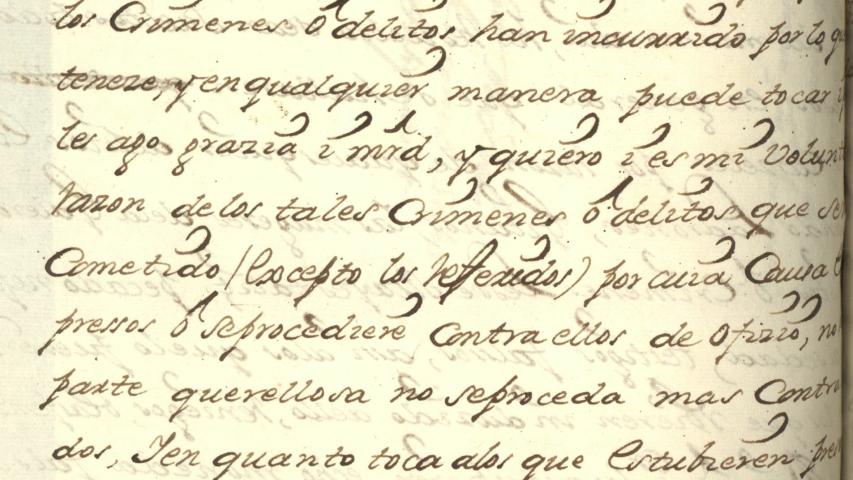 los Crimenes ô delitos han incurrido por lo
tenere, y en qualquier manera puede tocar
les ago grazia i mrd, y quiero i es mi
razon de los tales Crimenes ô delitos que
Cometido (Excepto los Refferidos) por cuia Causa
pressos ô se procediere Contra ellos de ofizio,
parte querellosa no se proceda mas
dos, I en quanto toca a los que Estubieren